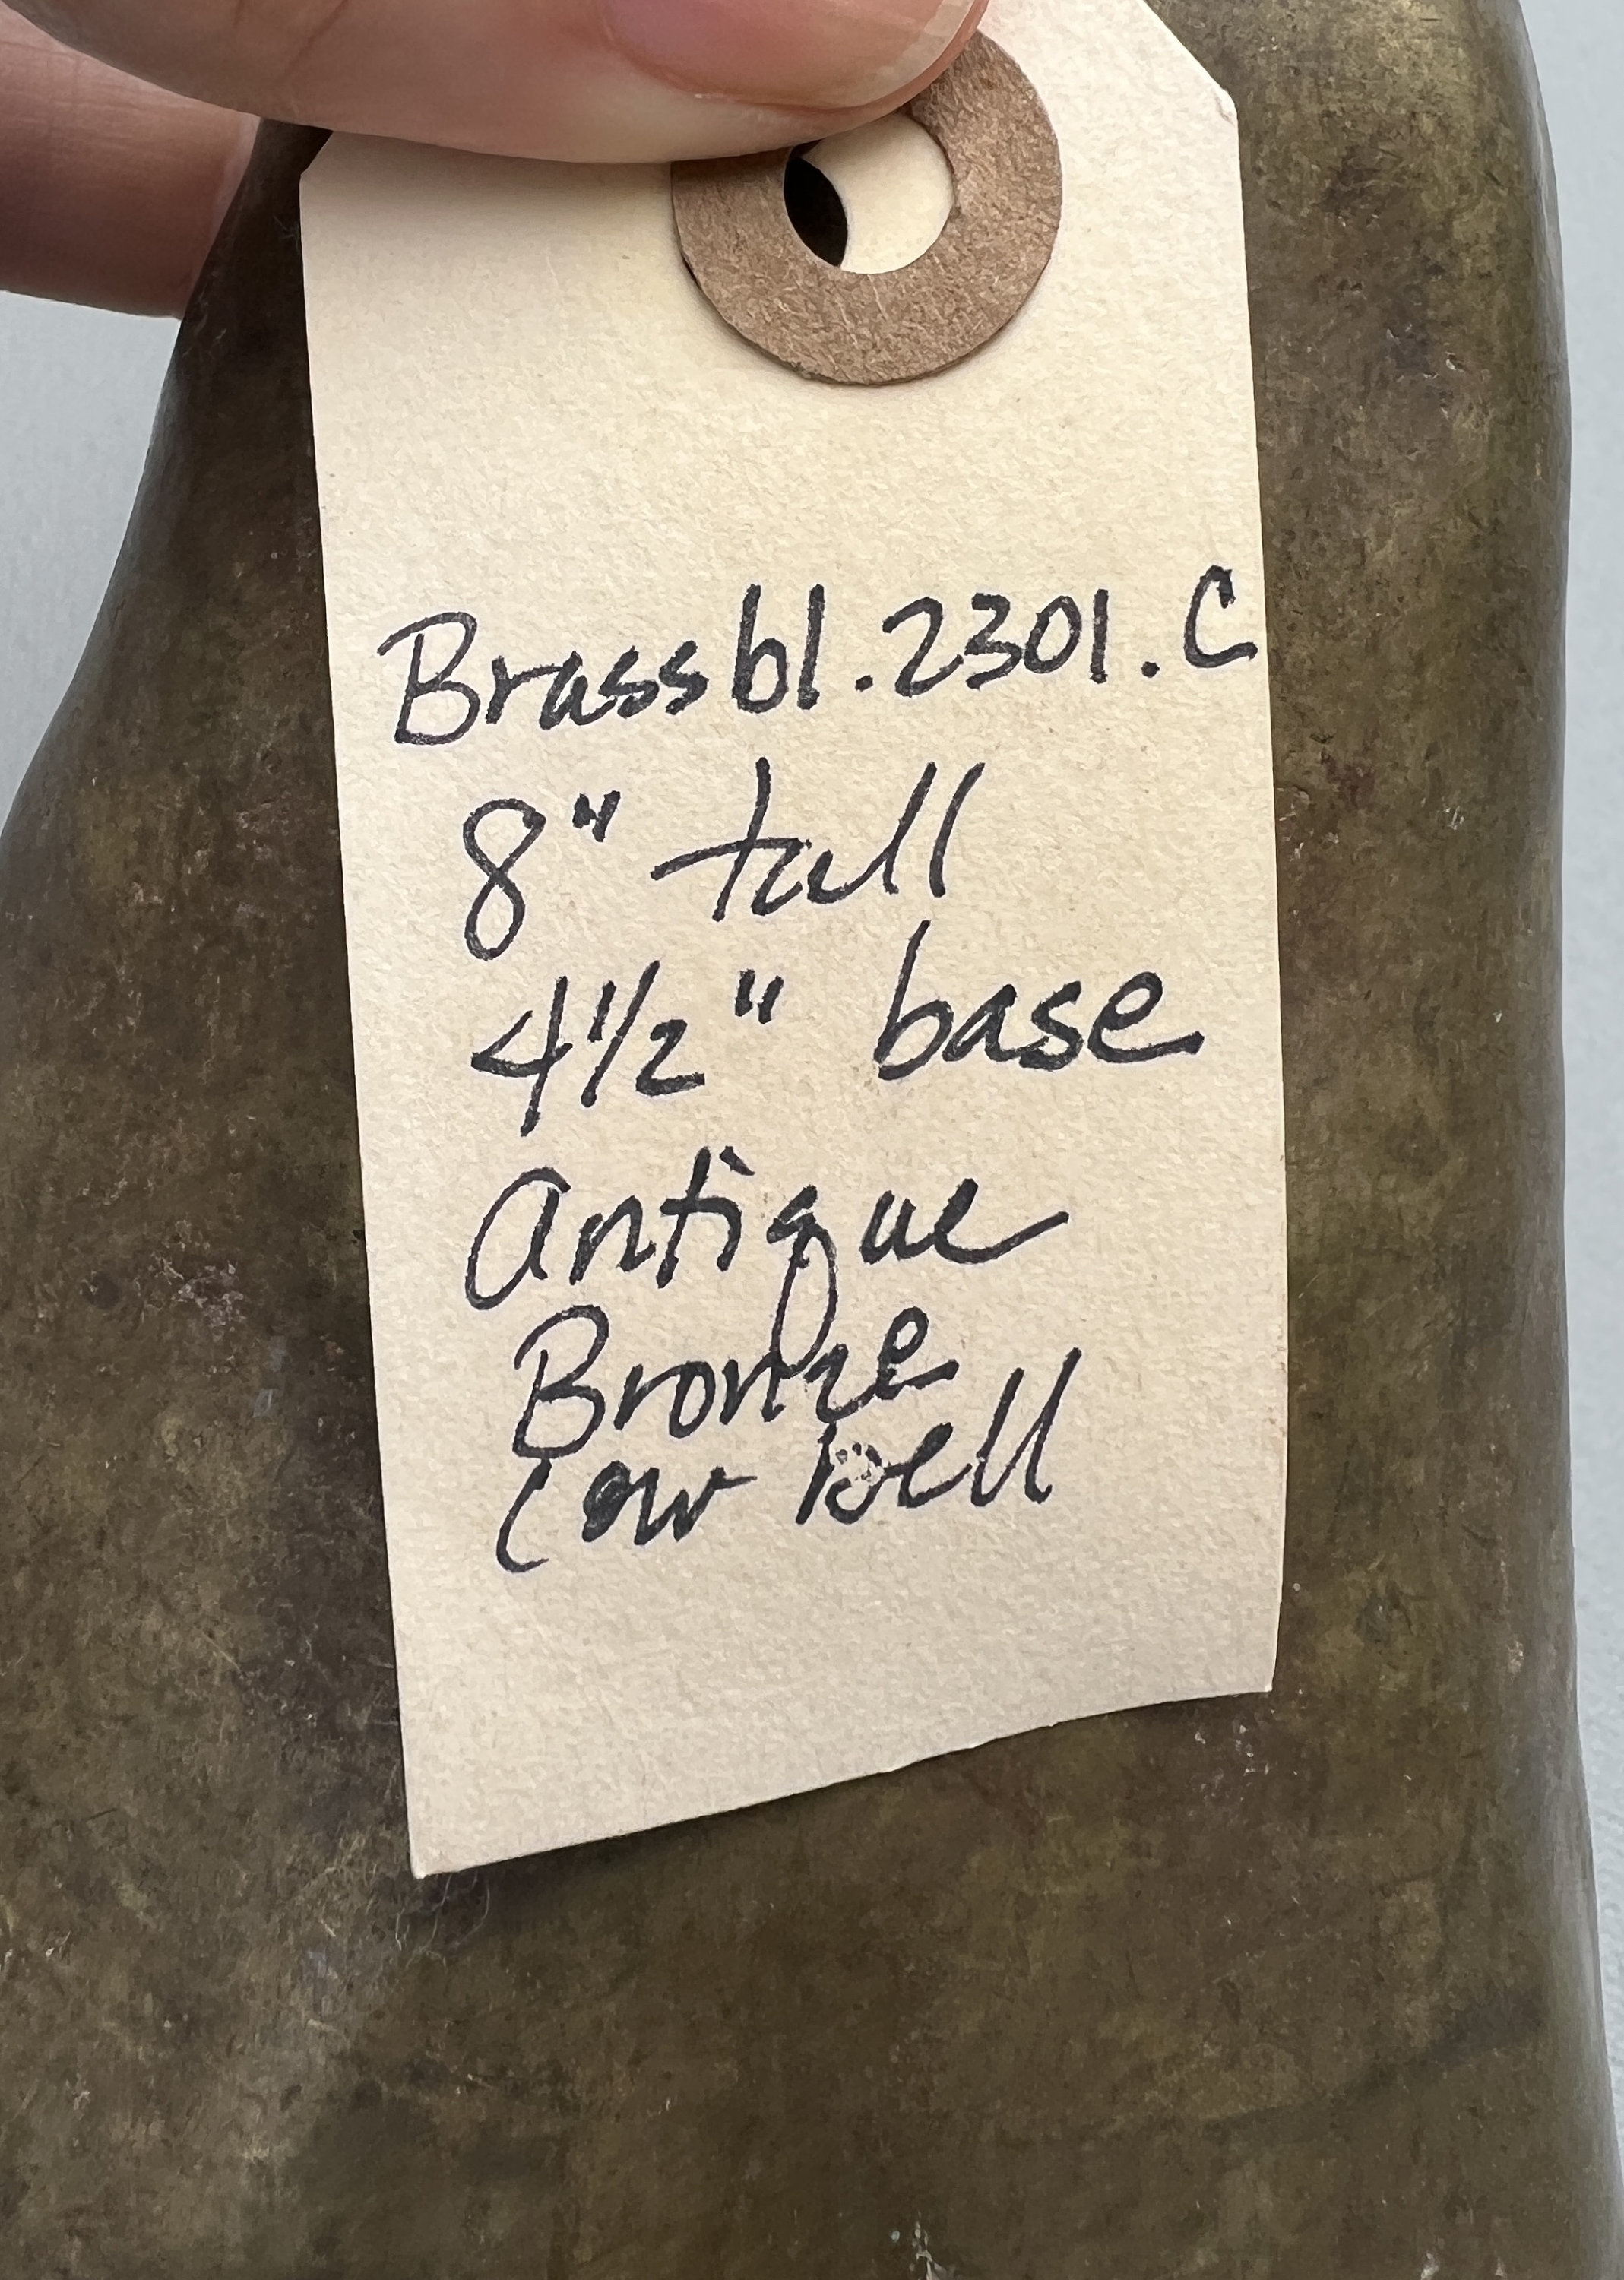 Brassbl.2301.C
8" tall
4½" base
Antique
Bronze
Cow bell